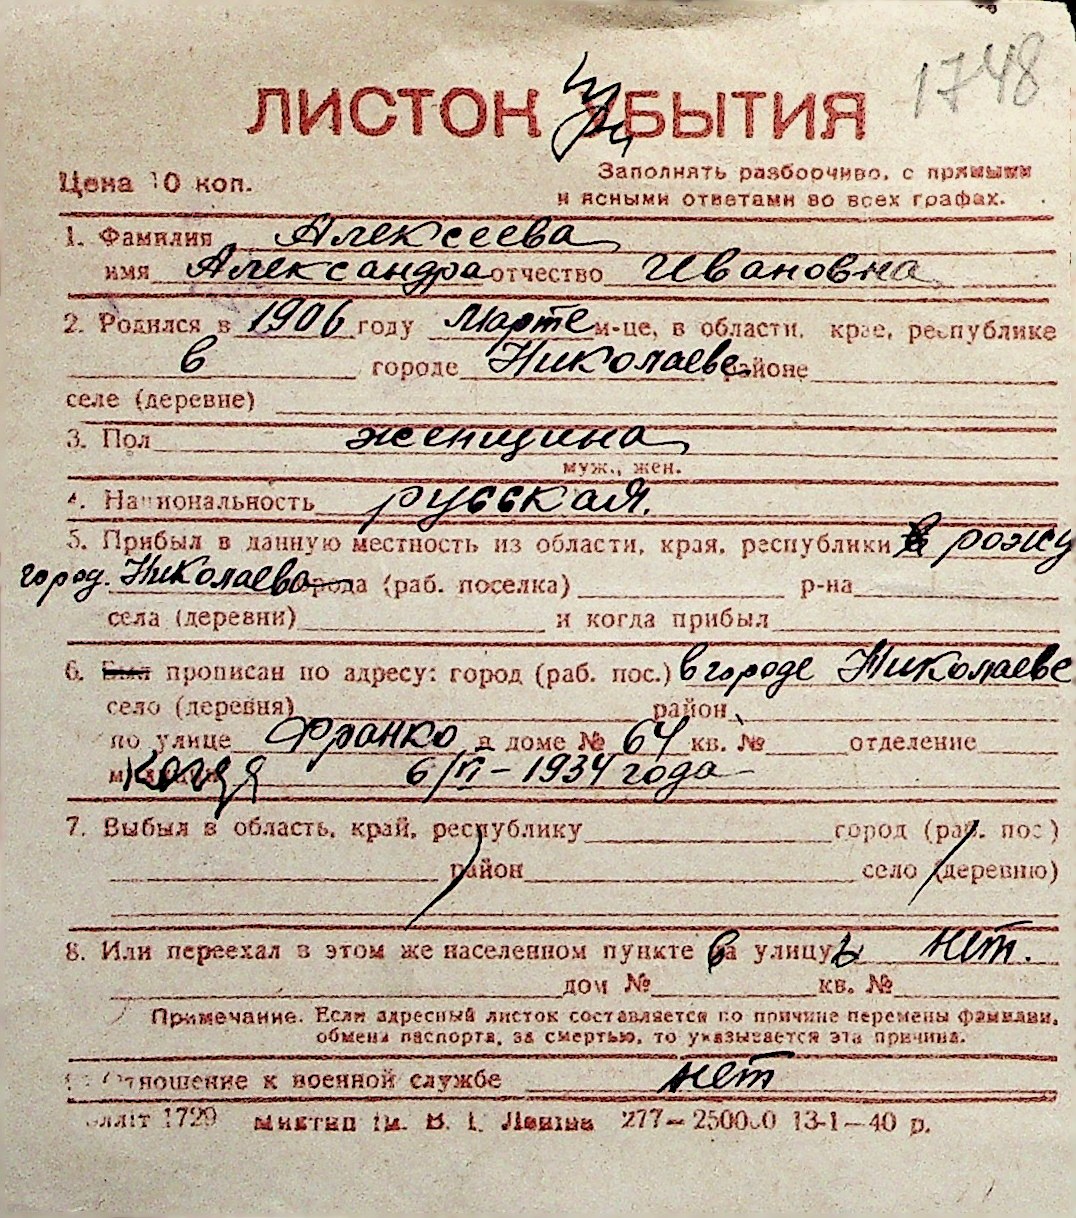 1748
ЛИСТОК при БЫТИЯ
Цена 10 коп.
Заполнять разборчиво, с прямыми
и ясными ответами во всех графах.
1. Фамилия Алексеева
имя Александра отчество Ивановна
2. Родился в 1906 году Марте м-це, в области, крае, республике
в городе Николаеве районе
селе (деревне)
3. Пол женщина
муж., жен.
4. Национальность русская.
5. Прибыл в данную местность из области, края, республики рожд
город. Николаева города (раб. поселка) р-на
села (деревни) и когда прибыл
6. Был прописан по адресу: город (раб. пос.) в городе Николаеве
село (деревня) район
по улице Франко в доме № 64 кв. № отделение
милиции Когда 6/II-1934 года
7. Выбыл в область, край, республику город (раб. пос.)
район село (деревню)
8. Или переехал в этом же населенном пункте на улицу нет.
дом № кв. №
Примечание. Если адресный листок составляется по причине перемены фамилии,
обмена паспорта, за смертью, то указывается эта причина.
Отношение к военной службе нет
1729 ім. В. І. Леніна 277—250000 13-1—40 р.